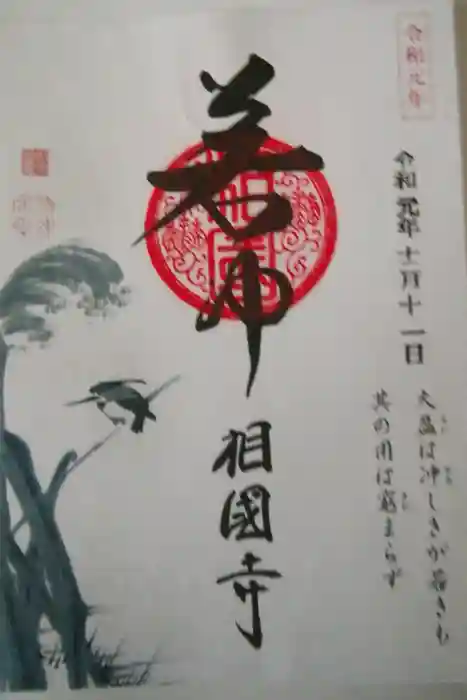 令和元年
令和元年 十一月十一日
大盈は冲しきが若きも
其の用は窮まらず
若冲
相國寺